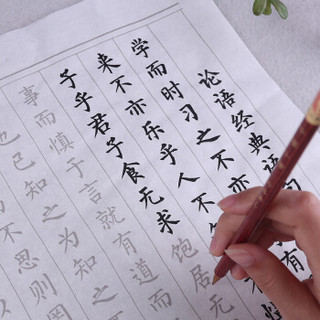 论语经典语
学而时习之不亦
来不亦乐乎人不
子乎君子食无求饱居无
事而慎于言就有道而
也已知之为知之
不思则罔